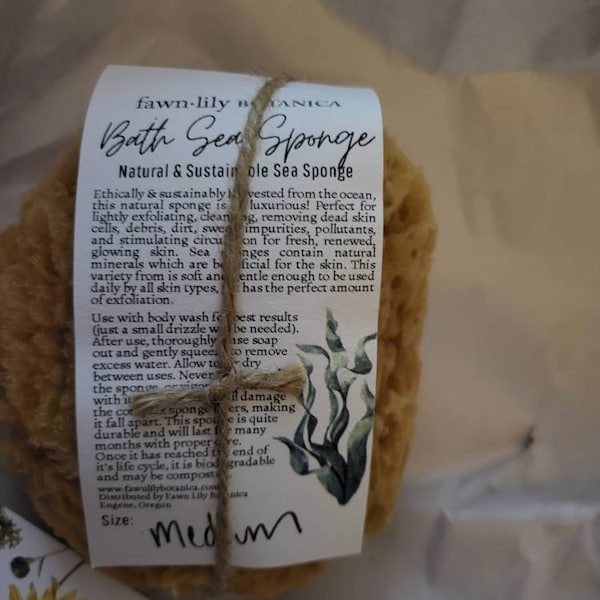 fawn·lily BOTANICA
Bath Sea Sponge
Natural & Sustainable Sea Sponge
Ethically & sustainably harvested from the ocean,
this natural sponge is luxurious! Perfect for
lightly exfoliating, cleansing, removing dead skin
cells, debris, dirt, sweat, impurities, pollutants,
and stimulating circulation for fresh, renewed,
glowing skin. Sea sponges contain natural
minerals which are beneficial for the skin. This
variety from is soft and gentle enough to be used
daily by all skin types, has the perfect amount
of exfoliation.
Use with body wash for best results
(just a small drizzle will be needed).
After use, thoroughly rinse soap
out and gently squeeze to remove
excess water. Allow to dry
between uses. Never
the sponge, or
with it damage
the sponge fibers, making
it fall apart. This sponge is quite
durable and will last for many
months with proper care.
Once it has reached the end of
it's life cycle, it is biodegradable
and may be composted.
www.fawnlilybotanica.com
Distributed by Fawn Lily Botanica
Eugene, Oregon
Size: Medium